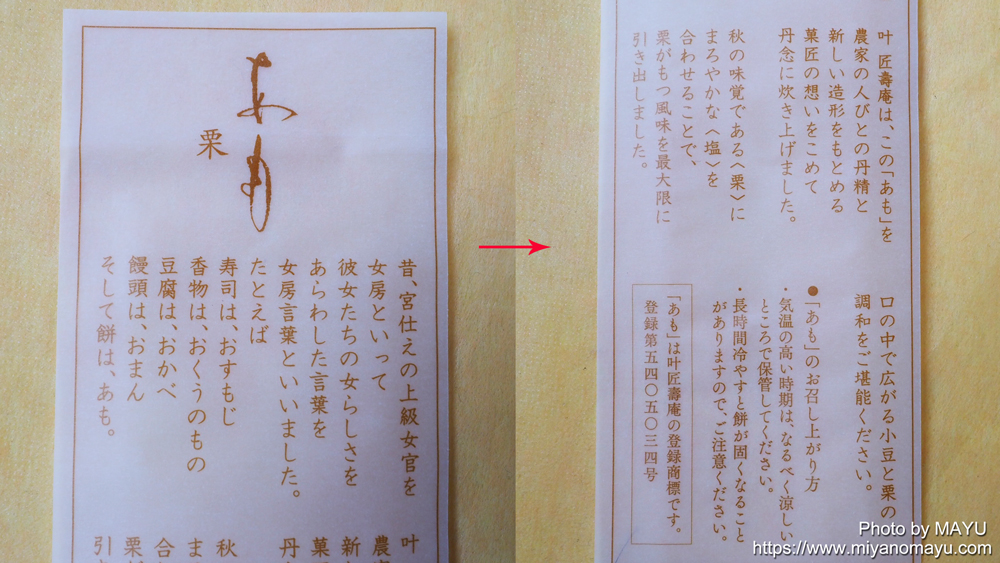 あも
栗
昔、宮仕えの上級女官を
女房といって
彼女たちの女らしさを
あらわした言葉を
女房言葉といいました。
たとえば
寿司は、おすもじ
香物は、おくうのもの
豆腐は、おかべ
饅頭は、おまん
そして餅は、あも。
叶
農家
新
菓
丹
秋
ま
合
栗
引き
叶 匠壽庵は、この「あも」を
農家の人びとの丹精と
新しい造形をもとめる
菓匠の想いをこめて
丹念に炊き上げました。
秋の味覚である〈栗〉に
まろやかな〈塩〉を
合わせることで、
栗がもつ風味を最大限に
引き出しました。
口の中で広がる小豆と栗の
調和をご堪能ください。
●「あも」のお召し上がり方
・気温の高い時期は、なるべく涼しい
ところで保管してください。
・長時間冷やすと餅が固くなること
がありますので、ご注意ください。
「あも」は叶匠壽庵の登録商標です。
登録第五四〇五〇三四号
Photo by MAYU
https://www.miyanomayu.com/